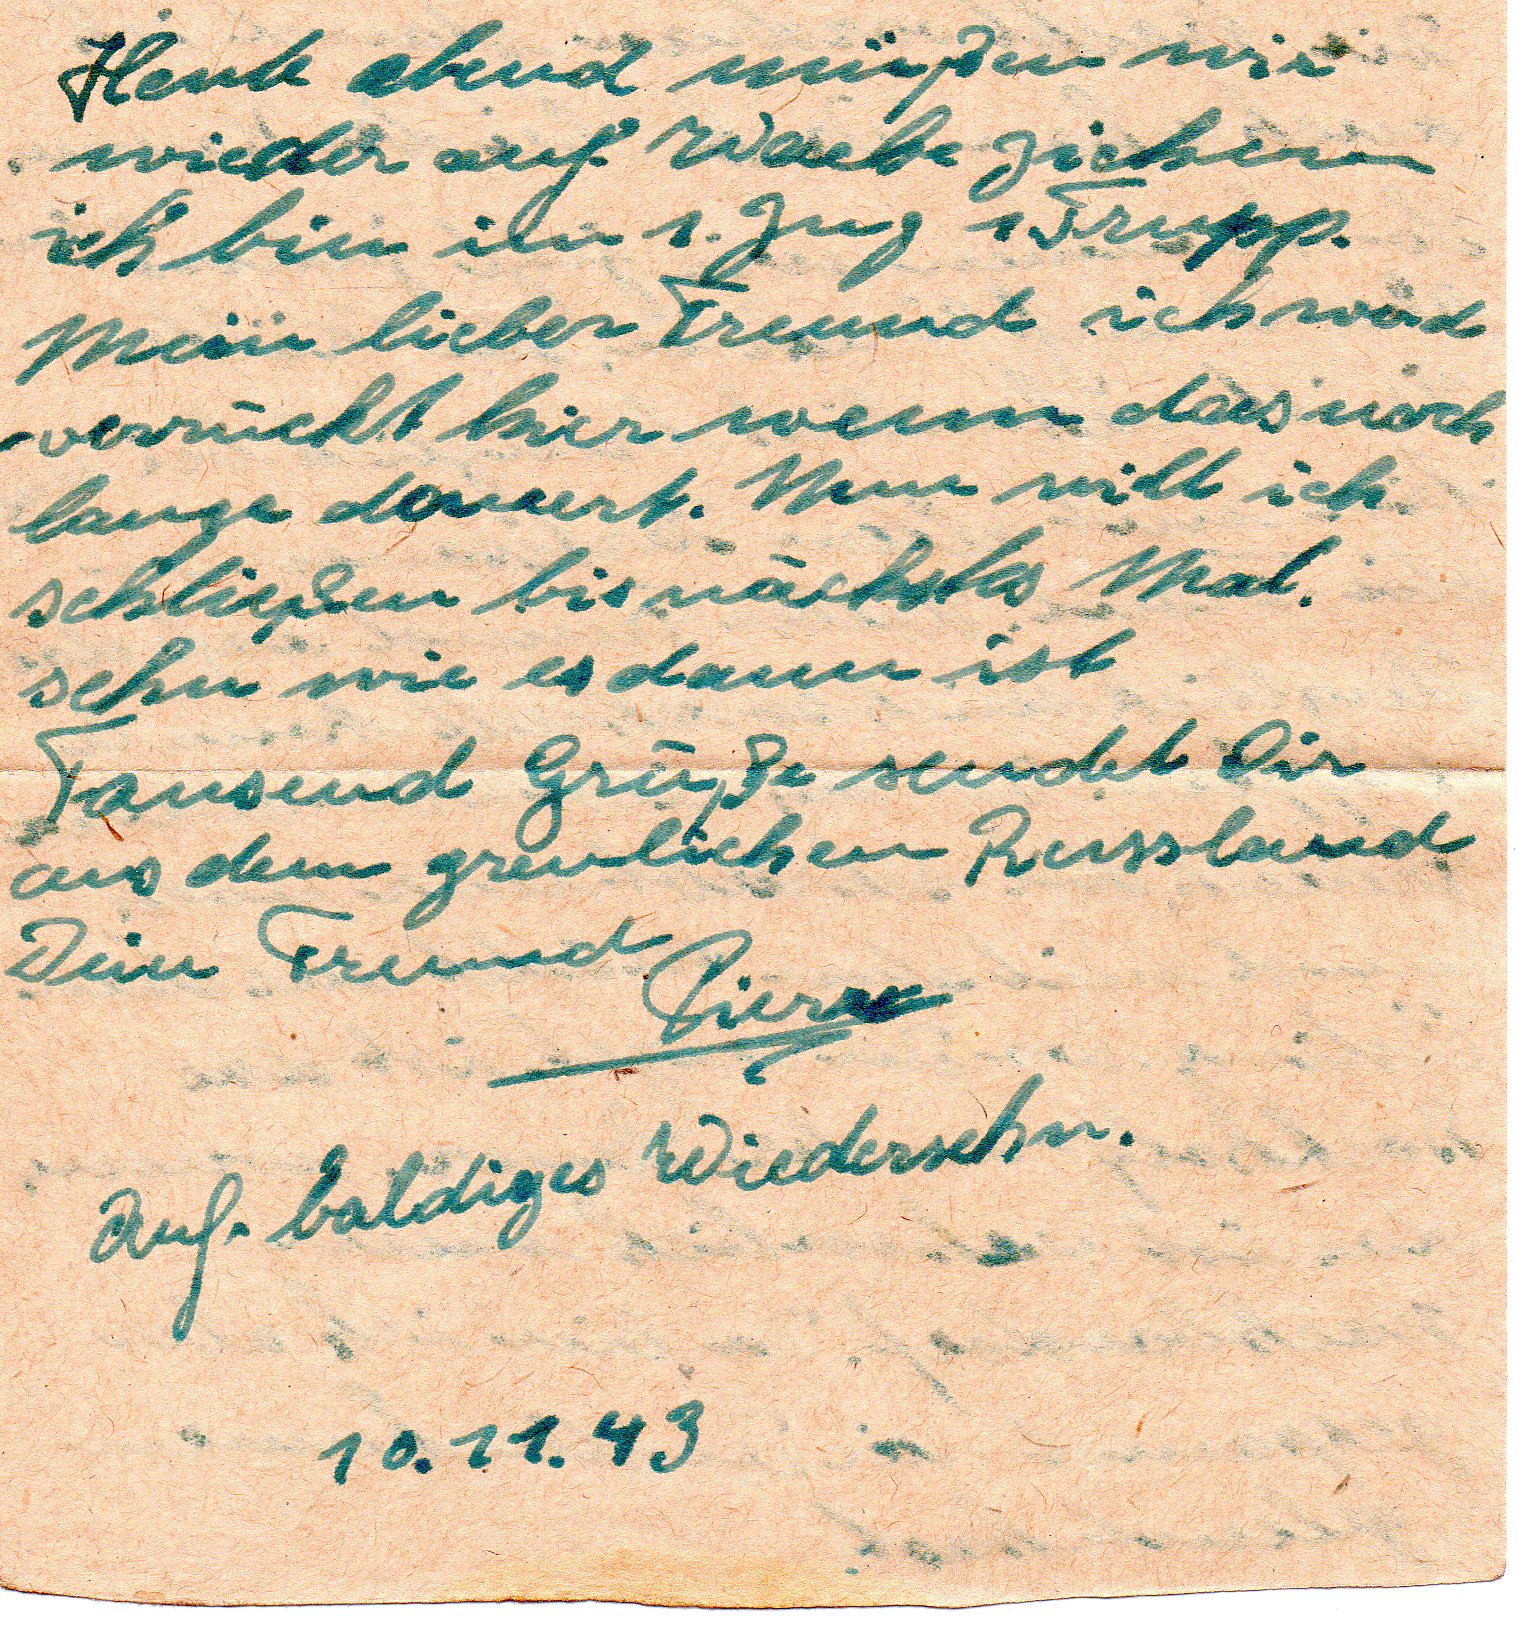 Heute abend müßen wir
wieder auf Wache ziehen
ich bin im 1. Zug 1 Trupp.
Mein lieber Freund ich werd
verrückt hier wenn das noch
lange dauert. Nun will ich
schließen bis nächstes Mal.
sehn wie es dann ist
Tausend Grüße sendet Dir
aus dem greulichen Russland
Dein Freund
Pierre
Auf baldiges Wiedersehn.
10.11.43